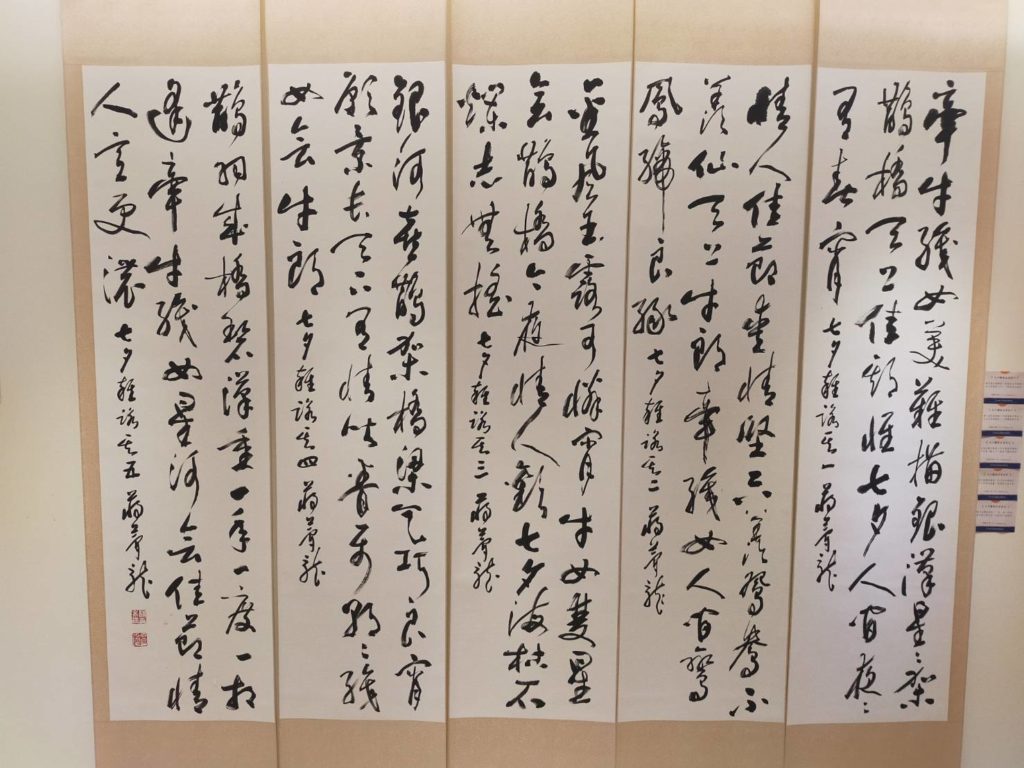 牽牛織女美難描銀漢星〻架
鵲橋天上佳期惟七夕人間夜〻
有春宵 七夕雜詠之一 蔣夢龍
情人佳節重情堅不羨鴛鴦不
羨仙天上牛郎牽織女人間鸞
鳳締良緣 七夕雜詠之二 蔣夢龍
金風玉露可憐宵牛女雙星
會鵲橋今夜情人歡七夕海枯石
爛志無搖 七夕雜詠之三 蔣夢龍
銀河喜鵲架橋梁乞巧良宵
願景長天下有情〻織
女會牛郎 七夕雜詠之四 蔣夢龍
鵲羽成橋碧漢重一年一度一相
逢牽牛織女星河會佳節情
人意更濃 七夕雜詠之五 蔣夢龍